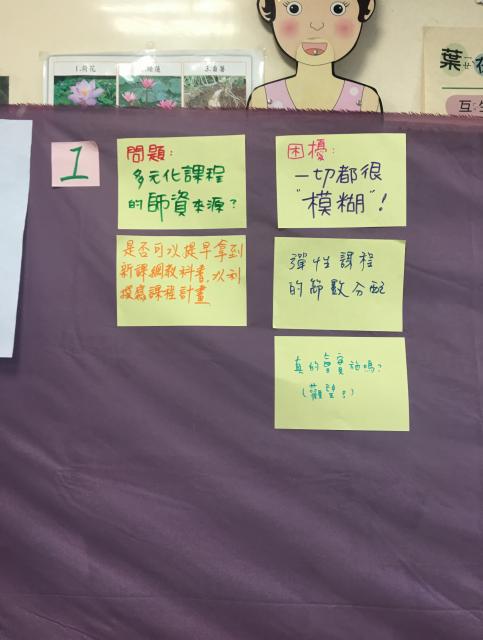 1.荷花
葉
互生
1
問題：
多元化課程
的師資來源？
困擾：
一切都很
"模糊"！
是否可以提早拿到
新課綱教科書，以利
撰寫課程計畫
彈性課程
的節數分配
真的會實施嗎？
（觀望？）